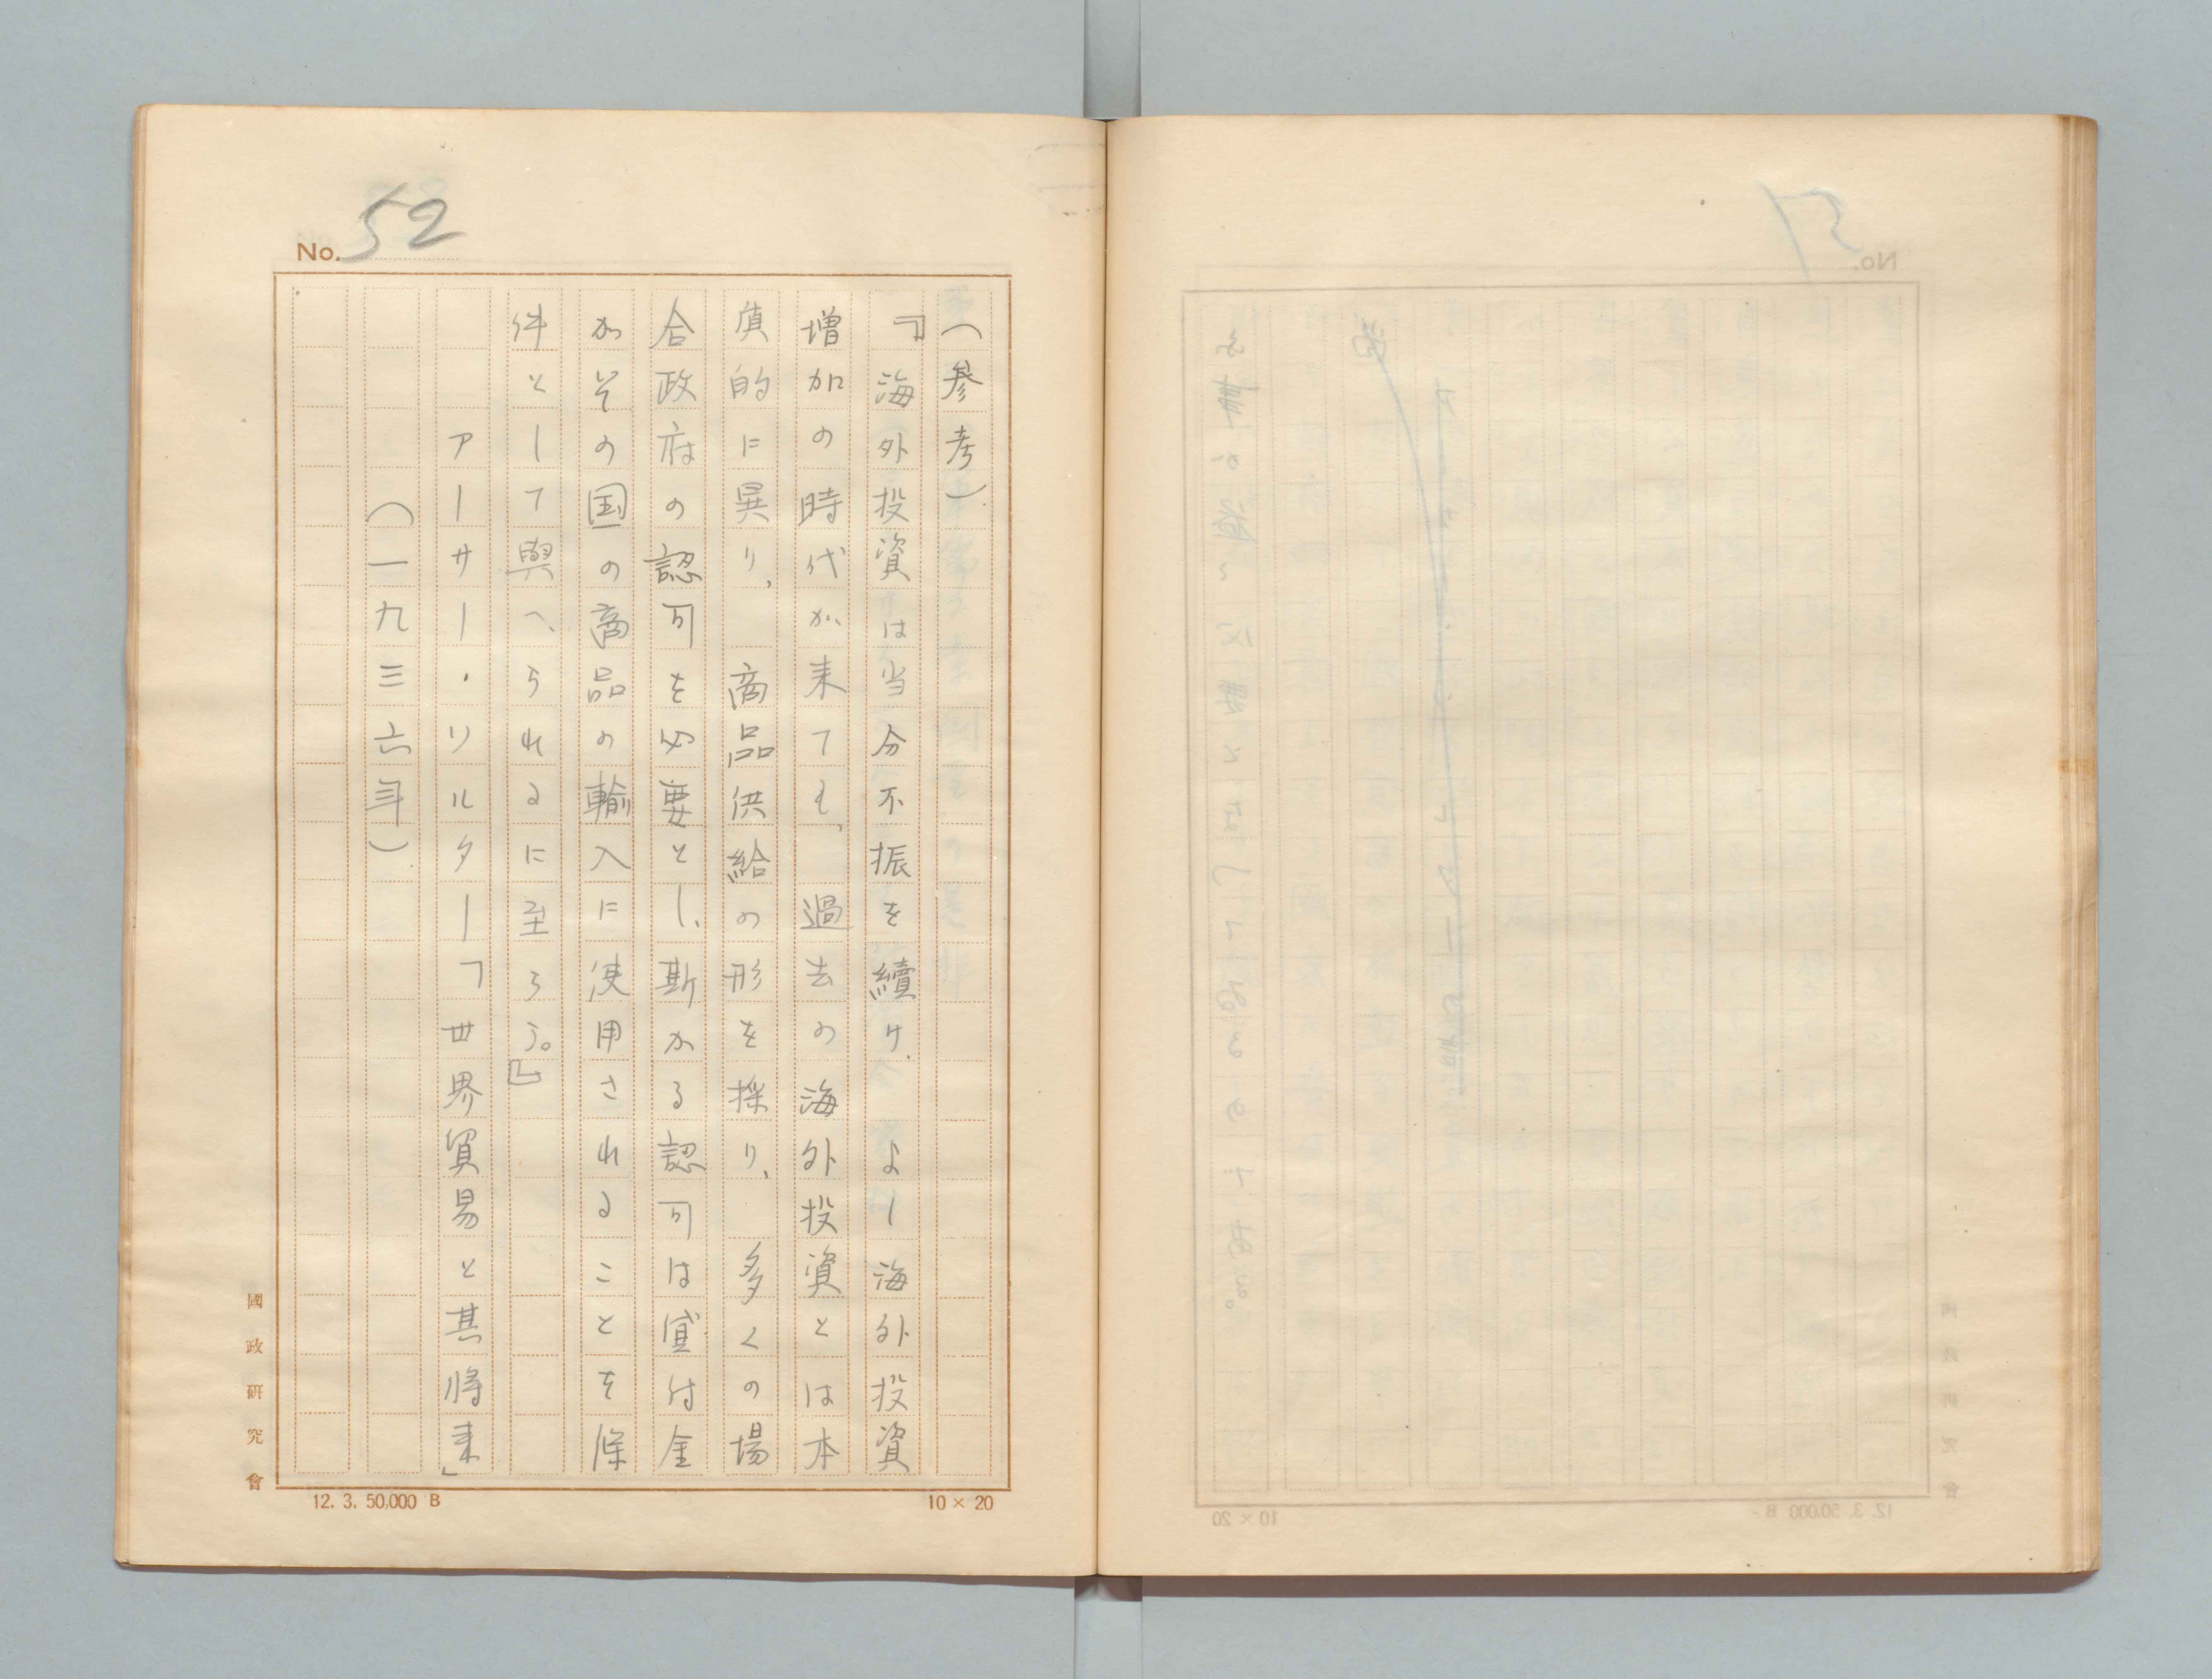 No. 52
(参考)
『海外投資は当分不振を續け、よし海外投資
増加の時代が来ても、過去の海外投資とは本
質的に異り、商品供給の形を採り、多くの場
合政府の認可を必要とし、斯かる認可は貸付金
がその国の商品の輸入に使用されることを條
件として與へられるに至らう。』
アーサー・ソルター「世界貿易と其将来」
(一九三六年)
國政研究會
12. 3. 50.000 B
10×20